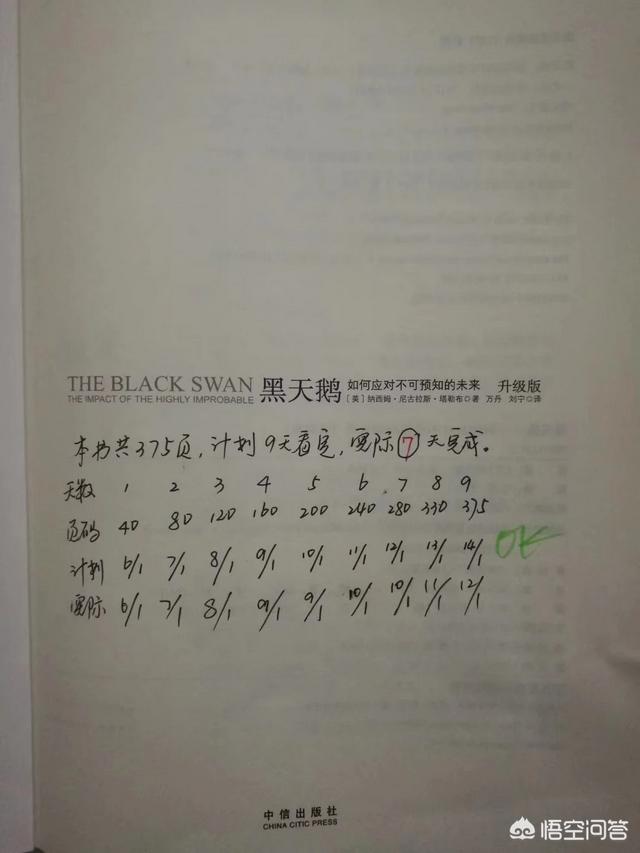 THE BLACK SWAN 黑天鹅 如何应对不可预知的未来 升级版
THE IMPACT OF THE HIGHLY IMPROBABLE [美]纳西姆·尼古拉斯·塔勒布著 万丹 刘宁译
本书共375页,计划9天看完,实际7天完成。
天数 1 2 3 4 5 6 7 8 9
页码 40 80 120 160 200 240 280 330 375
计划 6/1 7/1 8/1 9/1 10/1 11/1 12/1 13/1 14/1 OK
实际 6/1 7/1 8/1 9/1 9/1 10/1 10/1 11/1 12/1
中信出版社
CHINA CITIC PRESS
悟空问答